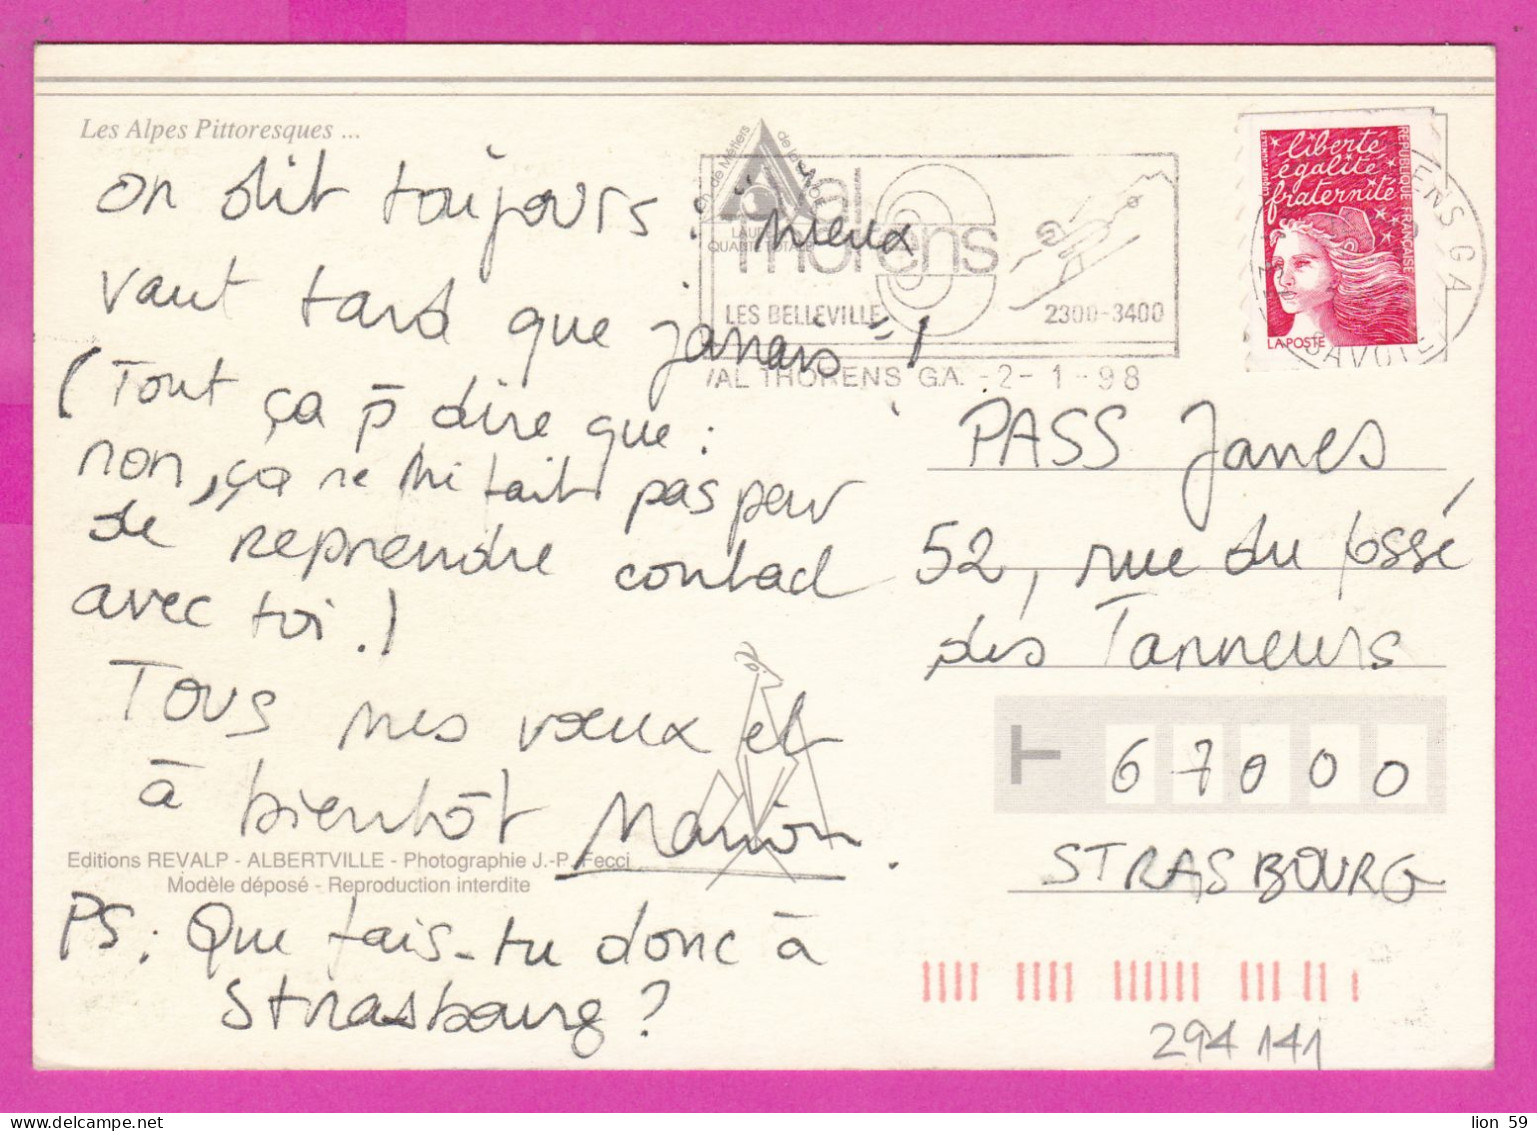 Les Alpes Pittoresques ...
On dit toujours : "mieux
vaut tard que jamais" !
(Tout ça pr dire que :
non, ça ne me fait pas peur
de reprendre contact
avec toi.!
Tous mes vœux et
à bientôt Marion.
Editions REVALP - ALBERTVILLE - Photographie J.-P. Fecci
Modèle déposé - Reproduction interdite
PS: Que fais-tu donc à
Strasbourg ?
Val
Thorens
LES BELLEVILLE
2300-3400
VAL THORENS GA. -2-1-98
liberté
égalité
fraternité
REPUBLIQUE FRANÇAISE
LA POSTE
ENS GA
SAVOIE
PASS James
52, rue du fossé
des Tanneurs
67000
STRASBOURG
294 141
lion 59